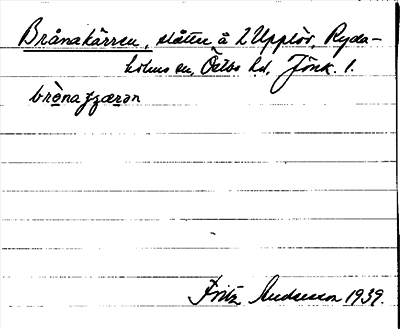 Brånakärren, slåtter å 2 Upplöv, Ryda-
holms sn, Östbo hd, Jönk. l.
brònaʒæren
Fritz Andersson 1939.